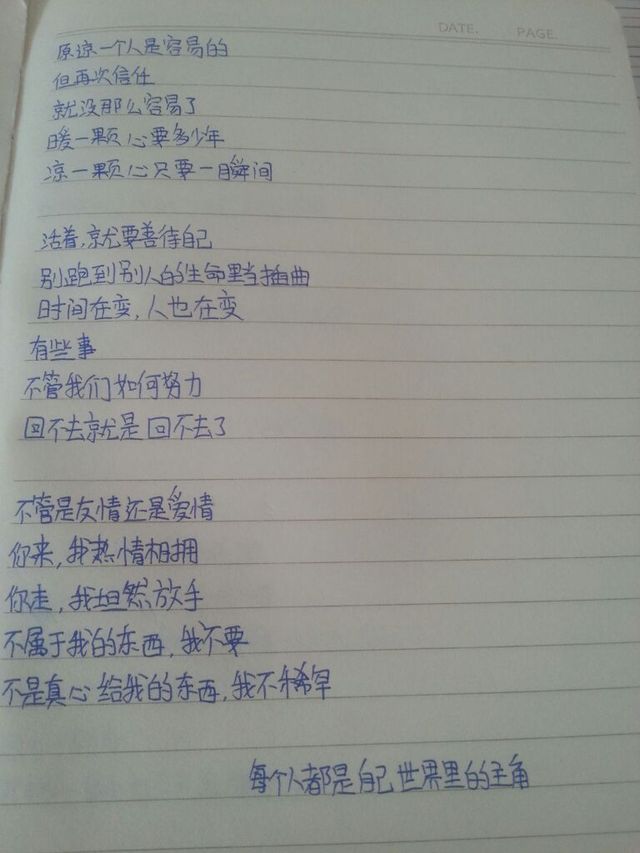 DATE. PAGE.
原谅一个人是容易的
但再次信任
就没那么容易了
暖一颗心要多少年
凉一颗心只要一瞬间
活着,就要善待自己
别跑到别人的生命里当插曲
时间在变,人也在变
有些事
不管我们如何努力
回不去就是回不去了
不管是友情还是爱情
你来,我热情相拥
你走,我坦然放手
不属于我的东西,我不要
不是真心给我的东西,我不稀罕
每个人都是自己世界里的主角